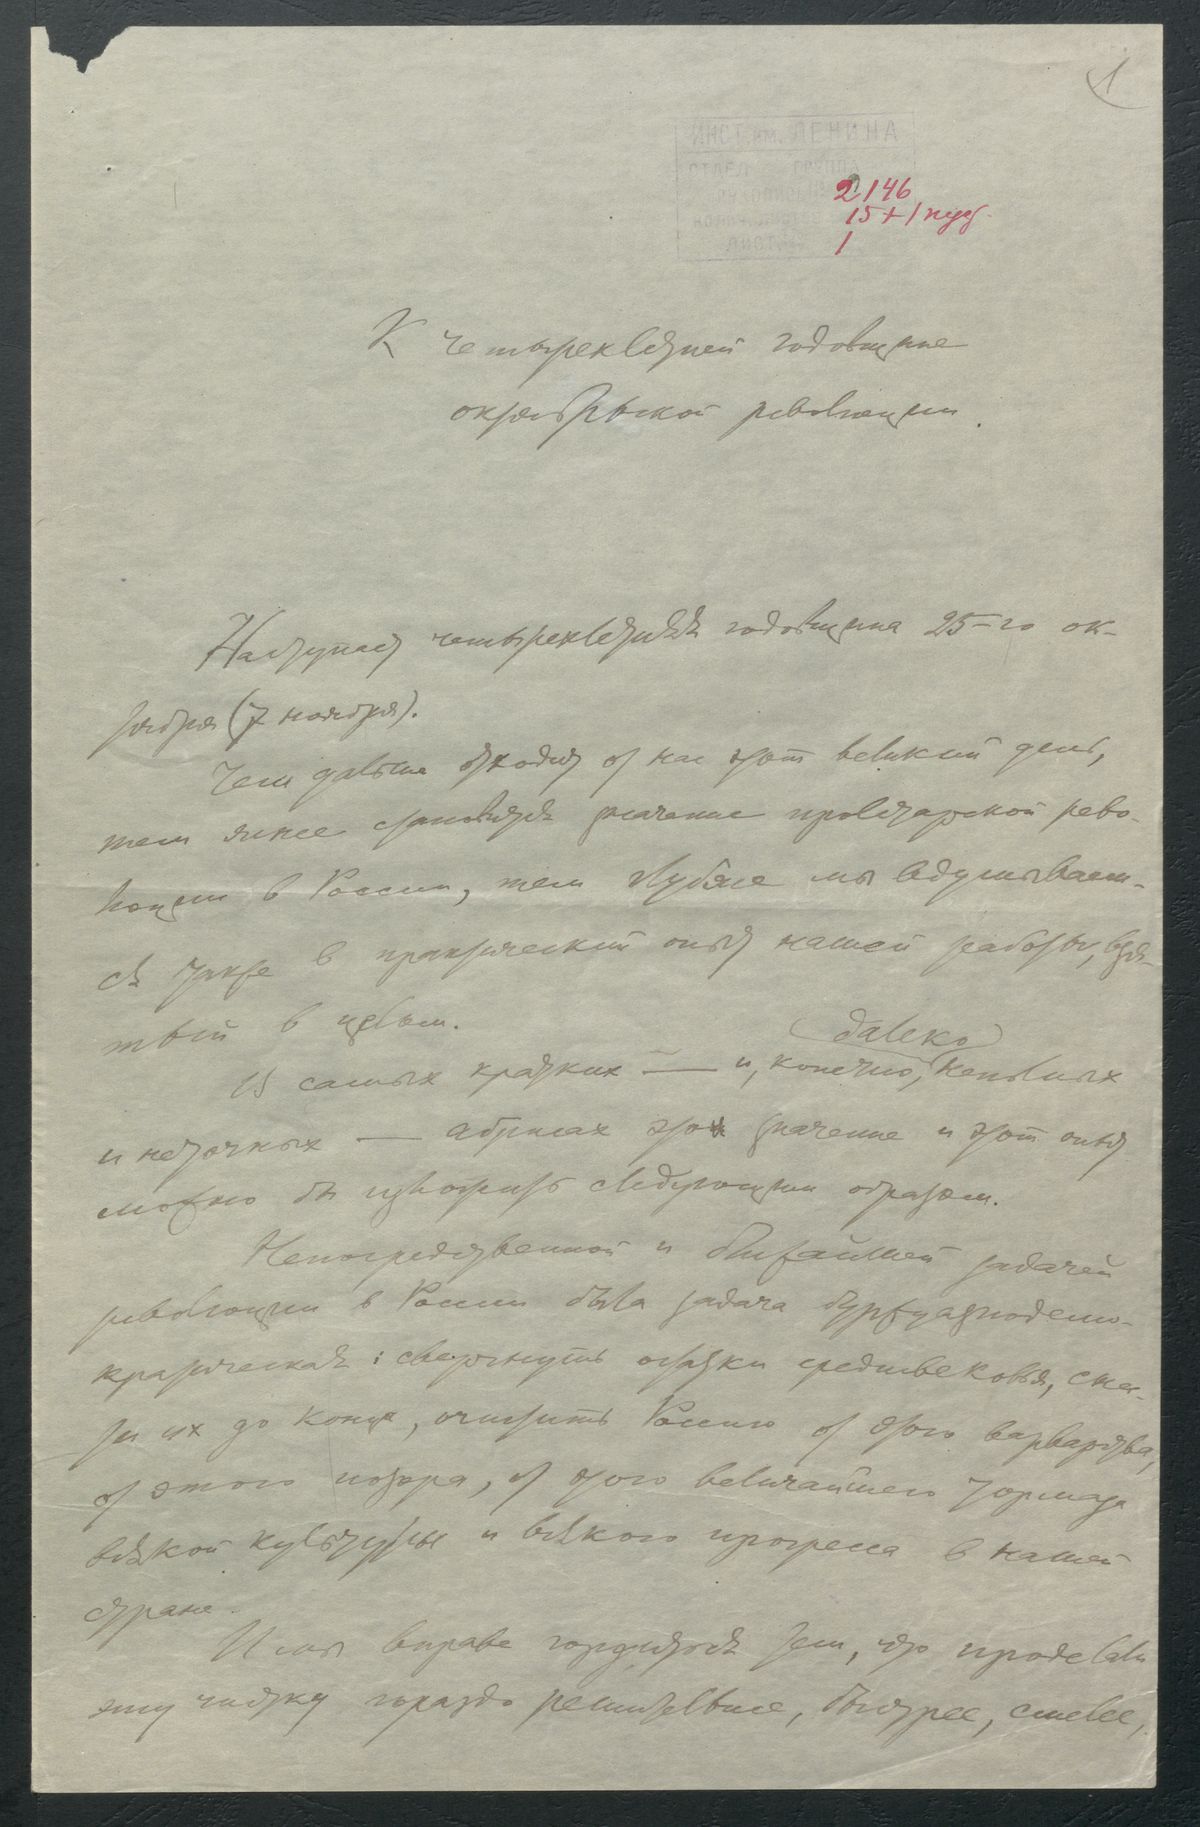 1
ИНСТ. им. ЛЕНИНА
2146
15+1 пуб.
1
К четырехлетней годовщине
октябрьской революции.
Наступает четырехлетняя годовщина 25-го ок-
тября (7 ноября).
Чем дальше отходит от нас этот великий день,
тем яснее становится значение пролетарской рево-
люции в России, тем глубже мы вдумываем-
ся также в практический опыт нашей работы, взя-
тый в целом.
далеко
В самых кратких — и, конечно, неполных
и неточных — абрисах это значение и этот опыт
можно бы изложить следующим образом.
Непосредственной и ближайшей задачей
революции в России была задача буржуазнодемо-
кратическая: свергнуть остатки средневековья, сне-
сти их до конца, очистить Россию от этого варварства,
от этого позора, от этого величайшего тормаза
всякой культуры и всякого прогресса в нашей
стране.
И мы вправе гордиться тем, что проделали
эту чистку гораздо решительнее, быстрее, смелее,